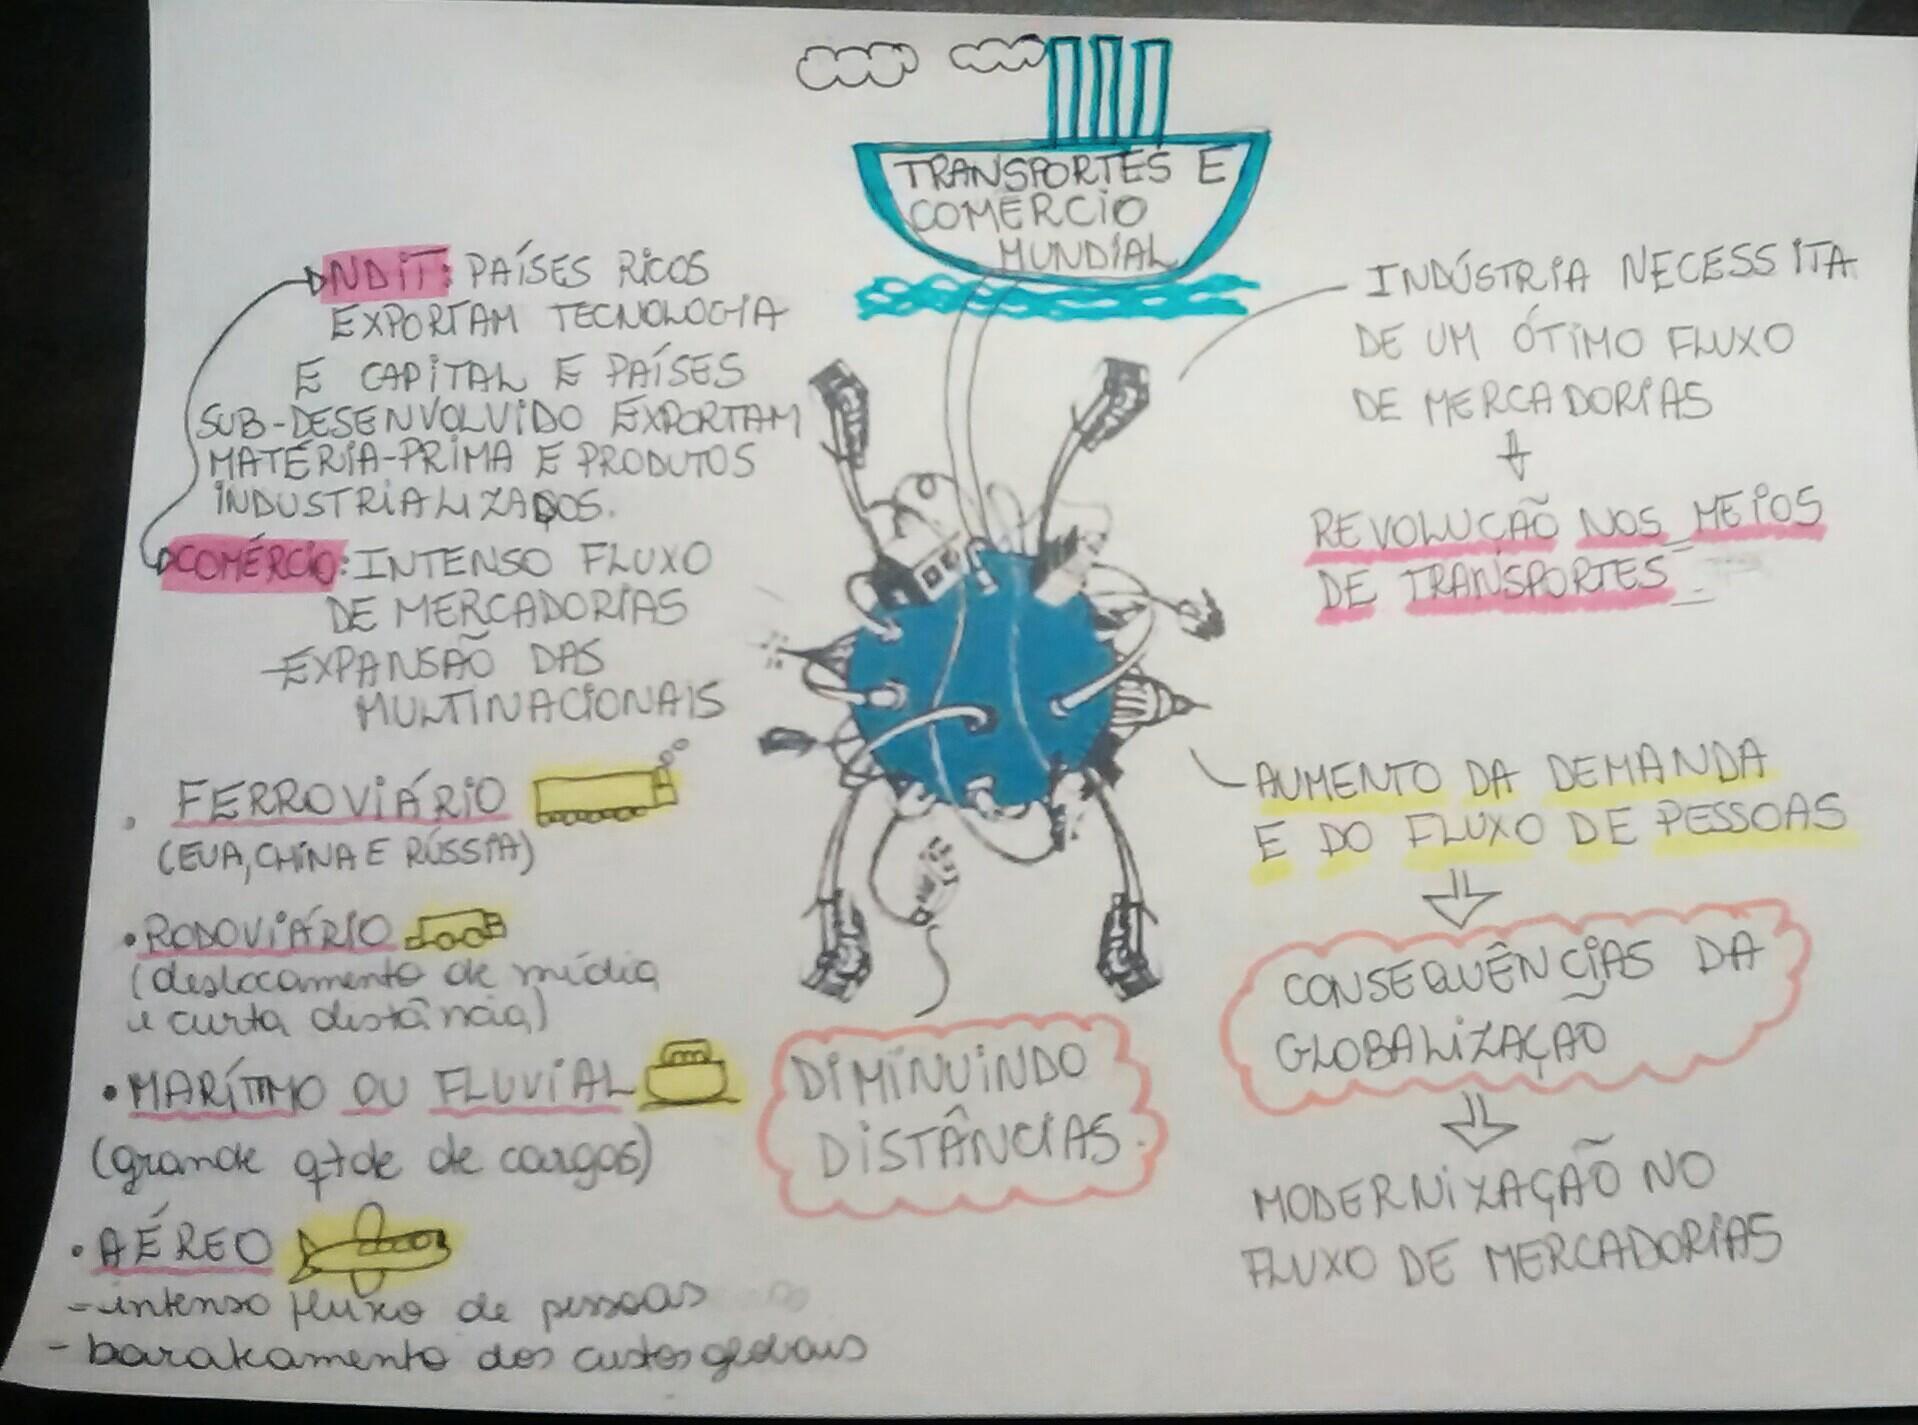 TRANSPORTES E
COMÉRCIO
MUNDIAL
NDIT: PAÍSES RICOS
EXPORTAM TECNOLOGIA
E CAPITAL E PAÍSES
SUB-DESENVOLVIDO EXPORTAM
MATÉRIA-PRIMA E PRODUTOS
INDUSTRIALIZADOS.
COMÉRCIO: INTENSO FLUXO
DE MERCADORIAS
-EXPANSÃO DAS
MULTINACIONAIS
FERROVIÁRIO
(EUA, CHINA E RÚSSIA)
• RODOVIÁRIO
(deslocamento de mídia
e curta distância)
• MARÍTIMO OU FLUVIAL
(grande qtde de cargas)
• AÉREO
- intenso fluxo de pessoas
- baratiamento dos custos globais
DIMINUINDO
DISTÂNCIAS.
INDÚSTRIA NECESSITA
DE UM ÓTIMO FLUXO
DE MERCADORIAS
REVOLUÇÃO NOS MEIOS
DE TRANSPORTES
AUMENTO DA DEMANDA
E DO FLUXO DE PESSOAS
CONSEQUÊNCIAS DA
GLOBALIZAÇÃO
MODERNIZAÇÃO NO
FLUXO DE MERCADORIAS